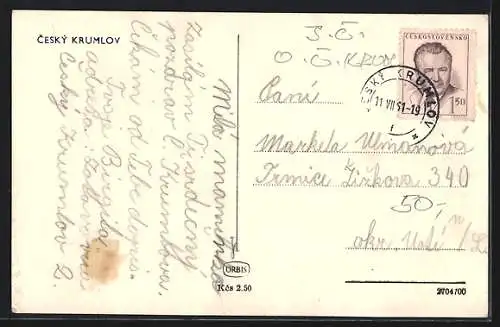 ČESKÝ KRUMLOV
Milá maminko
Zasílám Ti srdečný
pozdrav z Krumlova.
Čekám od Tebe dopis.
Tvoje
adresa:
Český Krumlov 2.
URBIS
Kčs 2.50
J. Č.
O. Č. KRUM
ČESKOSLOVENSKO
1.50
ČESKÝ KRUMLOV
11 VII 51-19
1
Paní
Markéta Ulmanová
Trmice Žižkova 340
50,-
okr. Ústí n/L
2704700